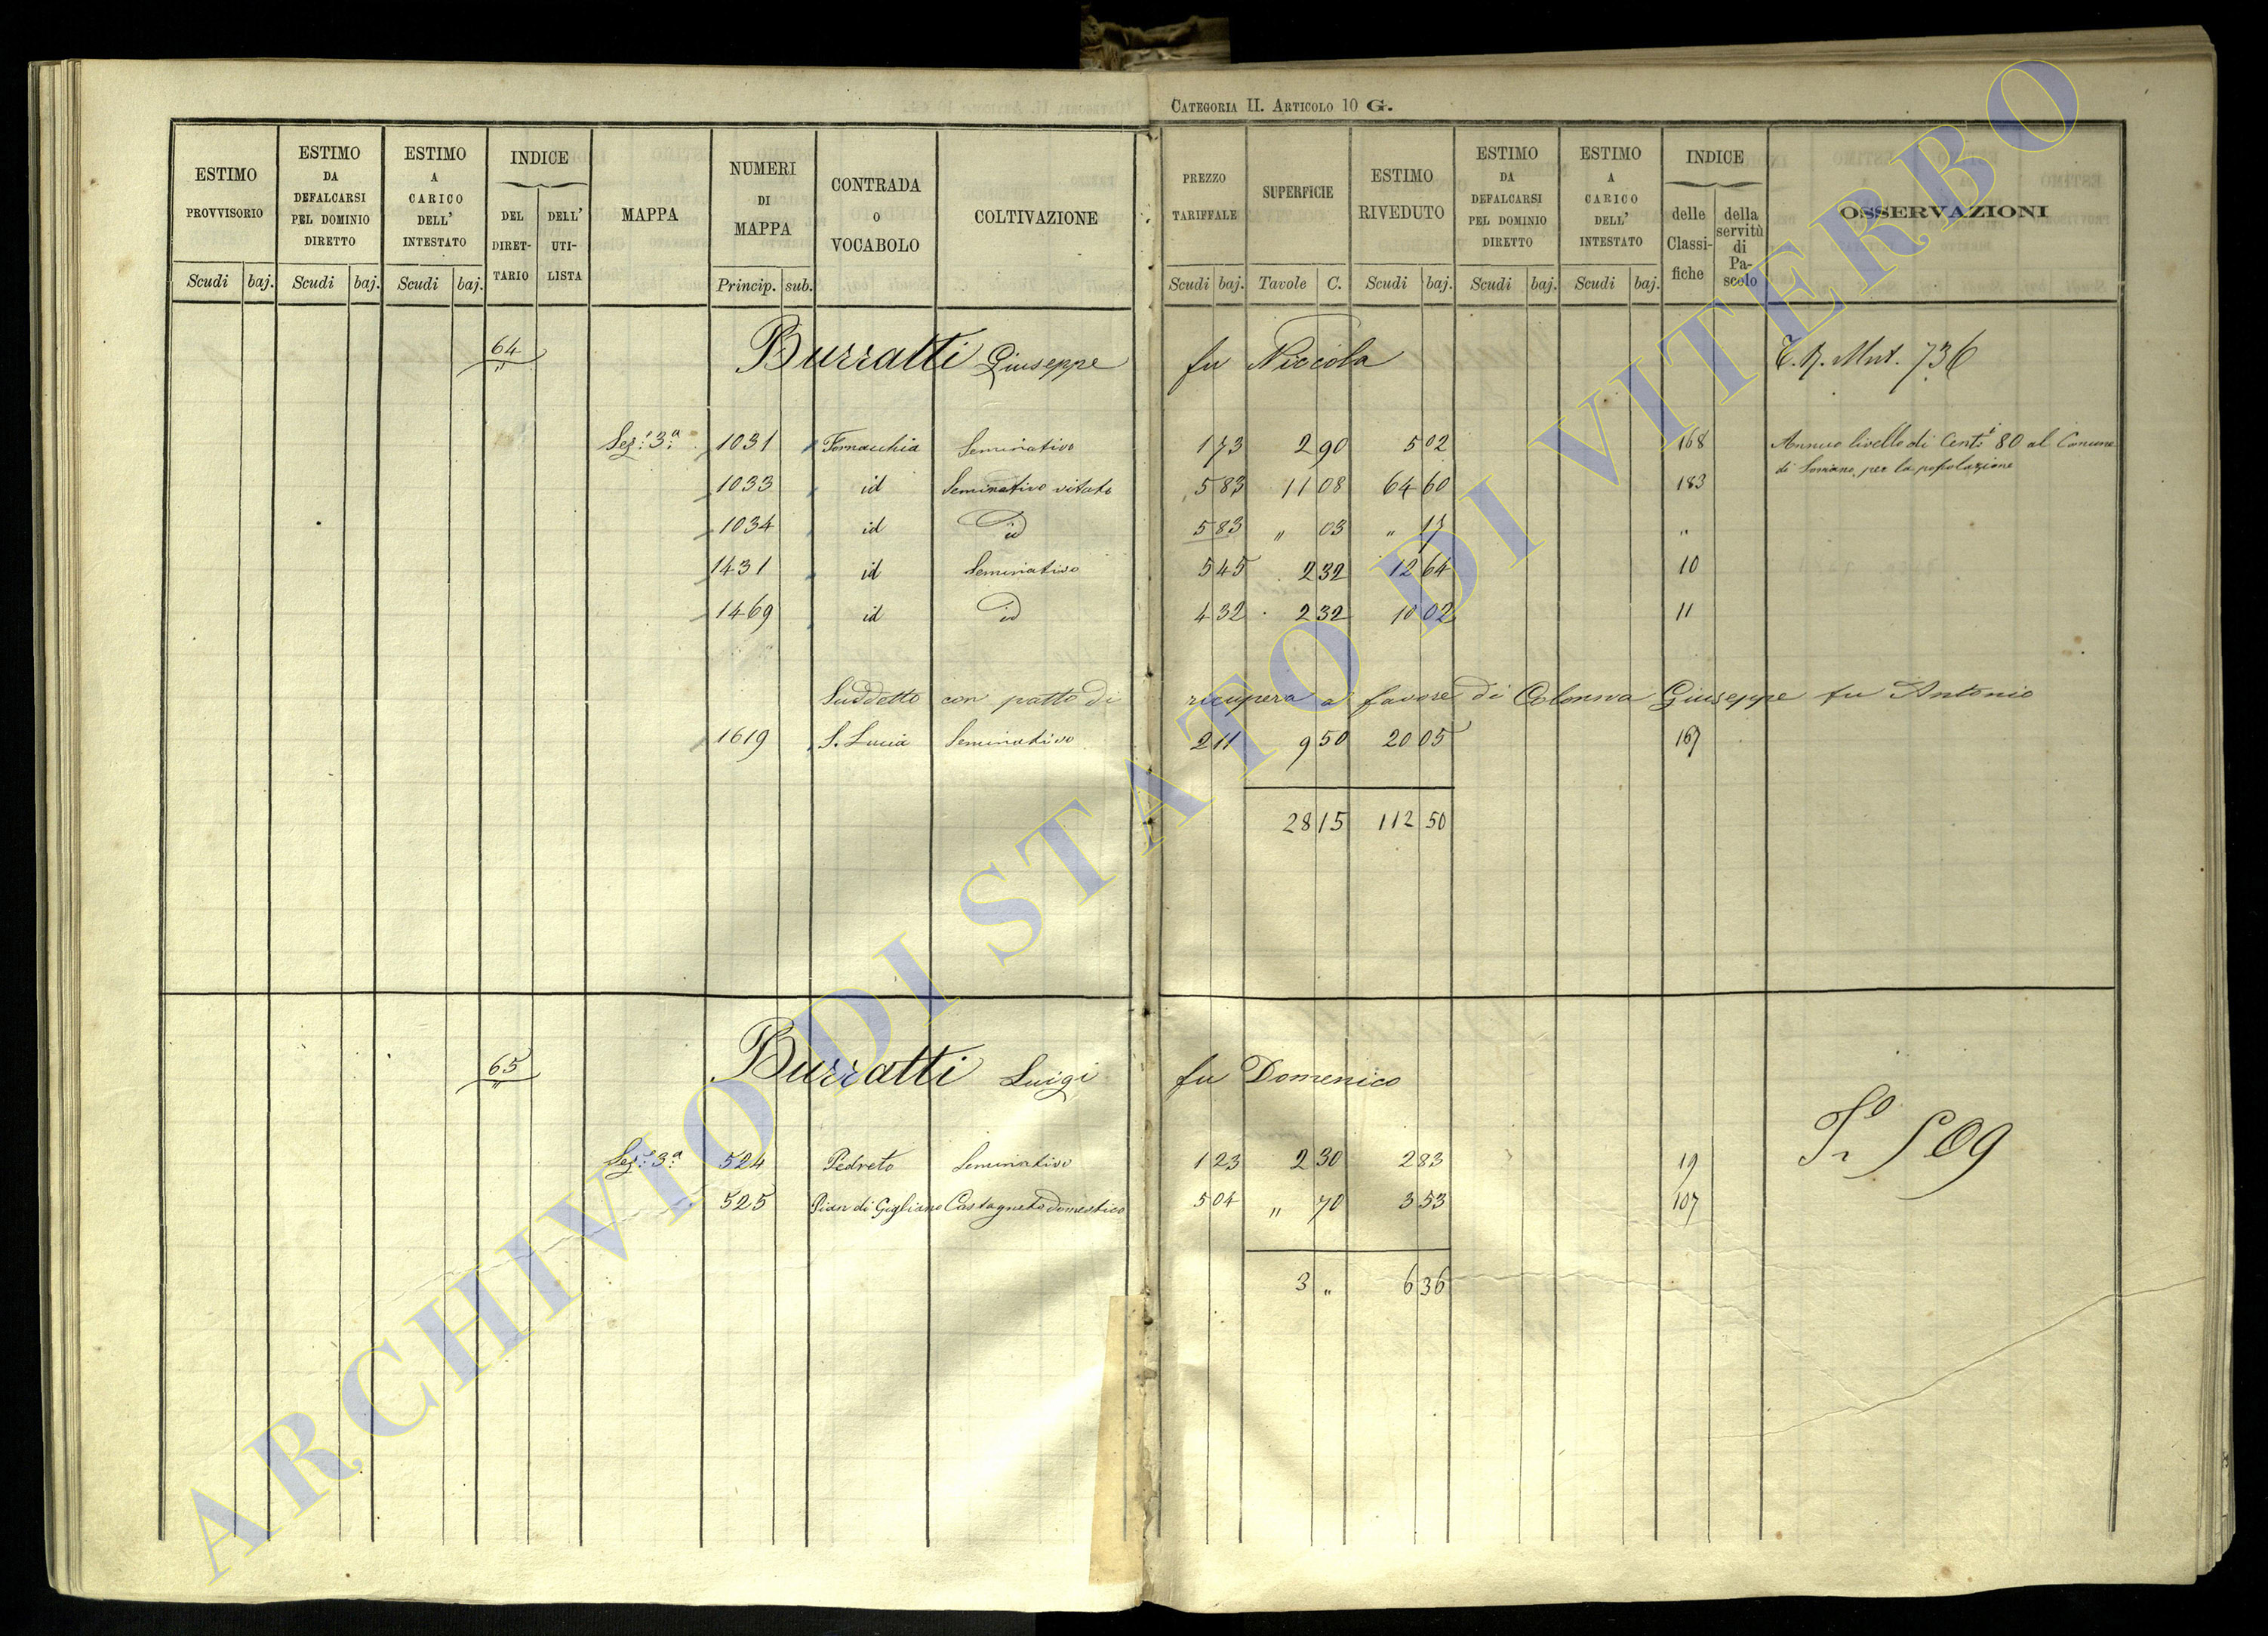 CATEGORIA II. ARTICOLO 10 G.
ESTIMO PROVVISORIO
ESTIMO DA DEFALCARSI PEL DOMINIO DIRETTO
ESTIMO A CARICO DELL' INTESTATO
INDICE
DEL DIRET-TARIO
DELL' UTI-LISTA
MAPPA
NUMERI DI MAPPA
CONTRADA O VOCABOLO
COLTIVAZIONE
PREZZO TARIFFALE
SUPERFICIE
ESTIMO RIVEDUTO
ESTIMO DA DEFALCARSI PEL DOMINIO DIRETTO
ESTIMO A CARICO DELL' INTESTATO
INDICE
delle Classi-fiche
della servitù di Pa-scolo
OSSERVAZIONI
Scudi baj. Scudi baj. Scudi baj. Princip. sub. Scudi baj. Tavole C. Scudi baj. Scudi baj. Scudi baj.
64 Burratti Giuseppe fu Niccola Mut. 736
Sez. 3a 1031 Fornacchia Seminativo 1 73 2 90 5 02 168 Annuo livello di Cent.i 80 al Comune
di Soriano per la popolazione
1033 id Seminativo vitato 5 83 11 08 64 60 183
1034 id id 5 83 " 03 " 17 "
1431 id Seminativo 5 45 2 32 12 64 10
1469 id id 4 32 2 32 10 02 11
Suddetto con patto di ricupera a favore di Colonna Giuseppe fu Antonio
1619 S. Lucia Seminativo 2 11 9 50 20 05 167
28 15 112 50
65 Burratti Luigi fu Domenico
Sez. 3a 524 Pedreto Seminativo 1 23 2 30 2 83 19
525 Pian di Gigliano Castagneto domestico 5 04 " 70 3 53 107
3 " 6 36
ARCHIVIO DI STATO DI VITERBO